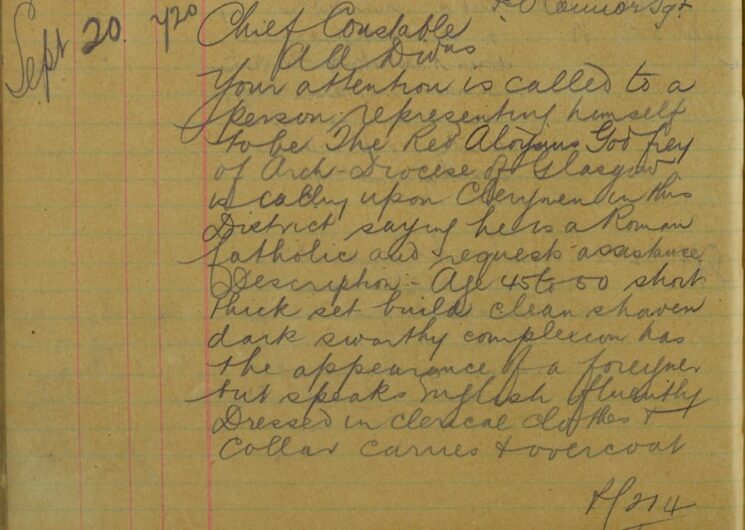 P. O'Connor Sgt
Sept 20. 720 Chief Constable
All Divns
Your attention is called to a
person representing himself
to be The Rev Aloysius Godfrey
of Arch-Diocese of Glasgow
is calling upon Clergymen in this
District saying he is a Roman
Catholic and requests assistance
Description:- Age 45 to 50 short
thick set build clean shaven
dark swarthy complexion has
the appearance of a foreigner
but speaks English fluently
Dressed in clerical clothes &
Collar carries & overcoat